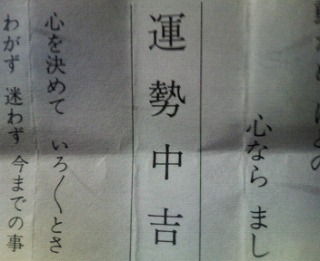 ほどの
心なら まし
運勢中吉
心を決めて いろ〱とさ
わがず 迷わず 今までの事